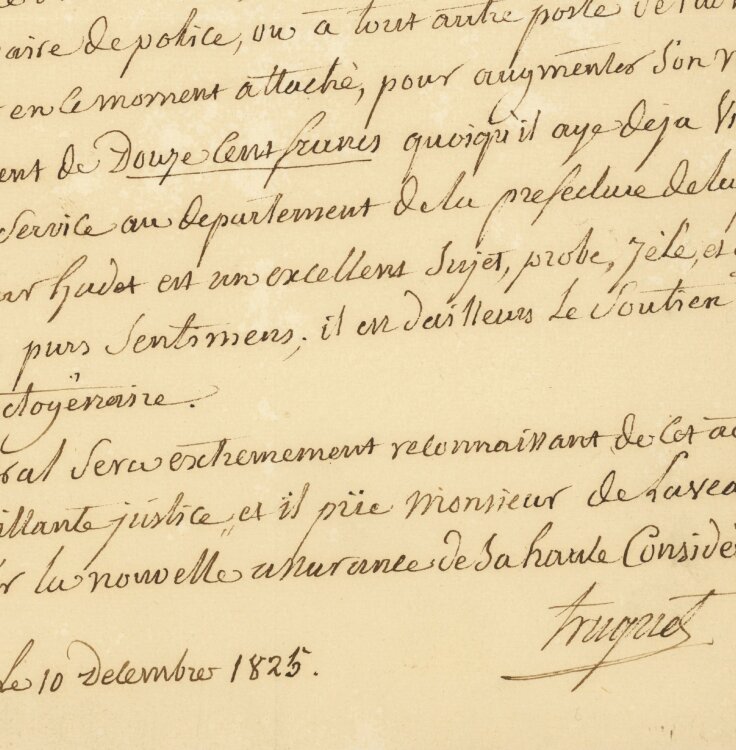 aire de police, ou à tout autre poste
en le moment attaché, pour augmenter son
ent de Douze Cent francs quoiqu'il aye deja
service au departement de la prefecture de la
hudet est un excellent sujet, probe, zèlé, et
purs sentimens; il est dailleurs le soutien
ctogénaire.
ral sera extremement reconnaissant de cet
illante justice, et il prie Monsieur de Lavea
r la nouvelle assurance de sa haute Considé
truguet
le 10 Decembre 1825.